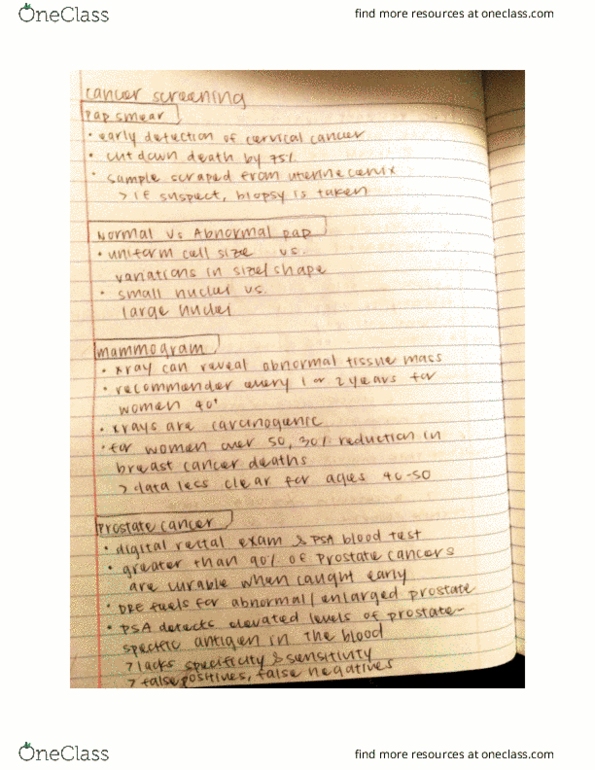 OneClass
find more resources at oneclass.com
cancer screening
Pap smear
• early detection of cervical cancer
• cut down death by 75%
• sample scraped from uterine cervix
> if suspect, biopsy is taken
Normal vs Abnormal pap
• uniform cell size vs.
variations in size/shape
• small nuclei vs.
large nuclei
mammogram
• xray can reveal abnormal tissue mass
• recommended every 1 or 2 years for
women 40+
• xrays are carcinogenic
• for women over 50, 30% reduction in
breast cancer deaths
> data less clear for ages 40-50
Prostate cancer
• digital rectal exam & PSA blood test
• greater than 90% of prostate cancers
are curable when caught early
• DRE fuels for abnormal/enlarged prostate
• PSA detects elevated levels of prostate-
specific antigen in the blood
> lacks specificity & sensitivity
> false positives, false negatives
OneClass
find more resources at oneclass.com